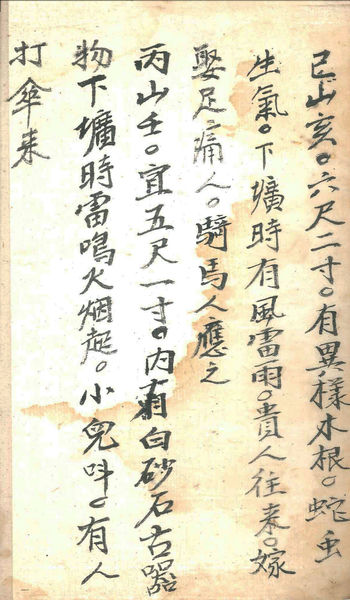 巳山亥。六尺二寸。有異樣木根。蛇虫
生氣。下壙時有風雷雨。貴人往来。嫁
娶足痛人。騎馬人應之
丙山壬。宜五尺一寸。内有白砂石古器
物下壙時雷鳴火烟起。小兒呌。有人
打傘来